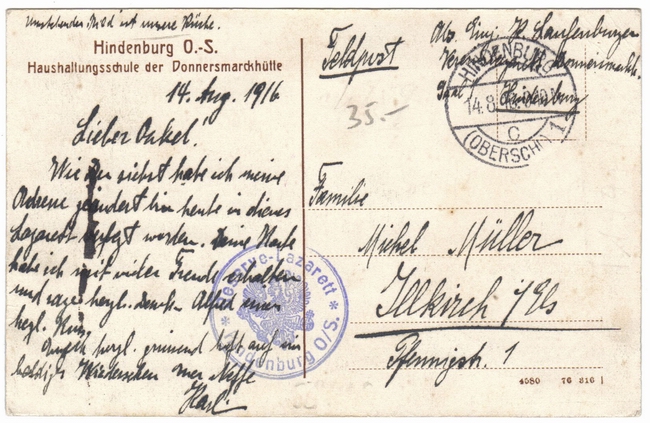 Umstehendes Bild ist unsere Küche.
Hindenburg O.-S.
Haushaltungsschule der Donnersmarckhütte
14. Aug. 1916
Lieber Onkel!
Wie du siehst habe ich meine
Adresse geändert bin heute in dieses
Lazarett verlegt worden. Deine Karte
habe ich mit vieler Freude erhalten
und sage herzl. Dank. Allen einen
herzl. Kuss
herzl. grüssend hofft auf ein
baldiges Wiedersehen euer Neffe
Karl.
Feldpost
Abs. Einj. K. Laufenburger
Donnersmarkh.
Hindenburg
35.-
HINDENBURG
14.8.16
C
(OBERSCHL) 1
Familie
Michel Müller
Illkirch i/Els
Pfennigstr. 1
Reserve-Lazarett
Hindenburg O/S.
4580 76 816